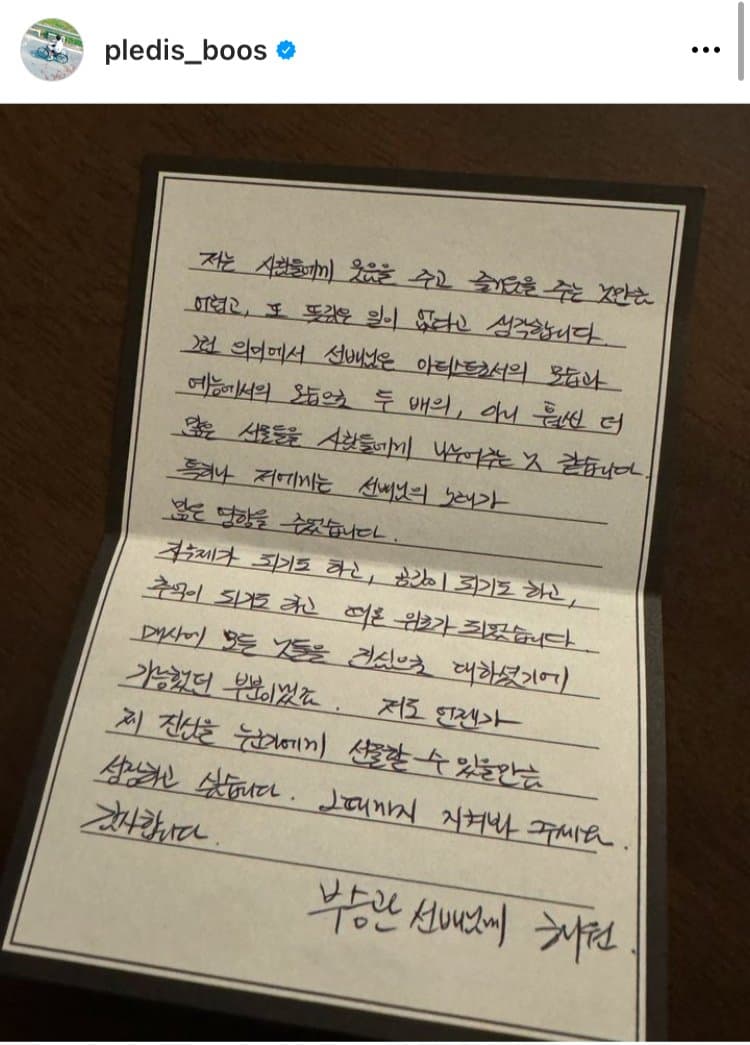 pledis_boos
저는 사람들에게 웃음을 주고 즐거움을 주는 것만큼
어렵고, 또 뜻깊은 일이 없다고 생각합니다.
그런 의미에서 선배님은 아티스트로서의 모습과
예능에서의 모습으로 두 배의, 아니 훨씬 더
많은 선물들을 사람들에게 나누어주는 것 같습니다.
특히나 저에게는 선배님의 노래가
많은 영향을 주었습니다.
자극제가 되기도 하고, 공감이 되기도 하고,
추억이 되기도 하고 때론 위로가 되었습니다.
매사에 모든 것들을 진심으로 대하셨기에
가능했던 부분이겠죠. 저도 언젠가
제 진심을 누군가에게 선물할 수 있을만큼
성장하고 싶습니다. 그때까지 지켜봐 주세요.
감사합니다.
부승관 선배님께